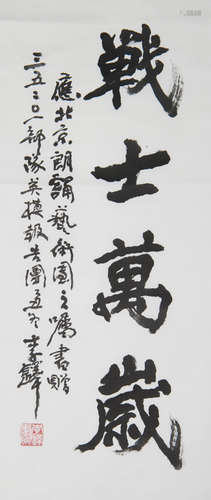 戰士萬歲
應北京朗誦藝術團之囑書贈
三五二〇一部隊英模報告團
李鐸